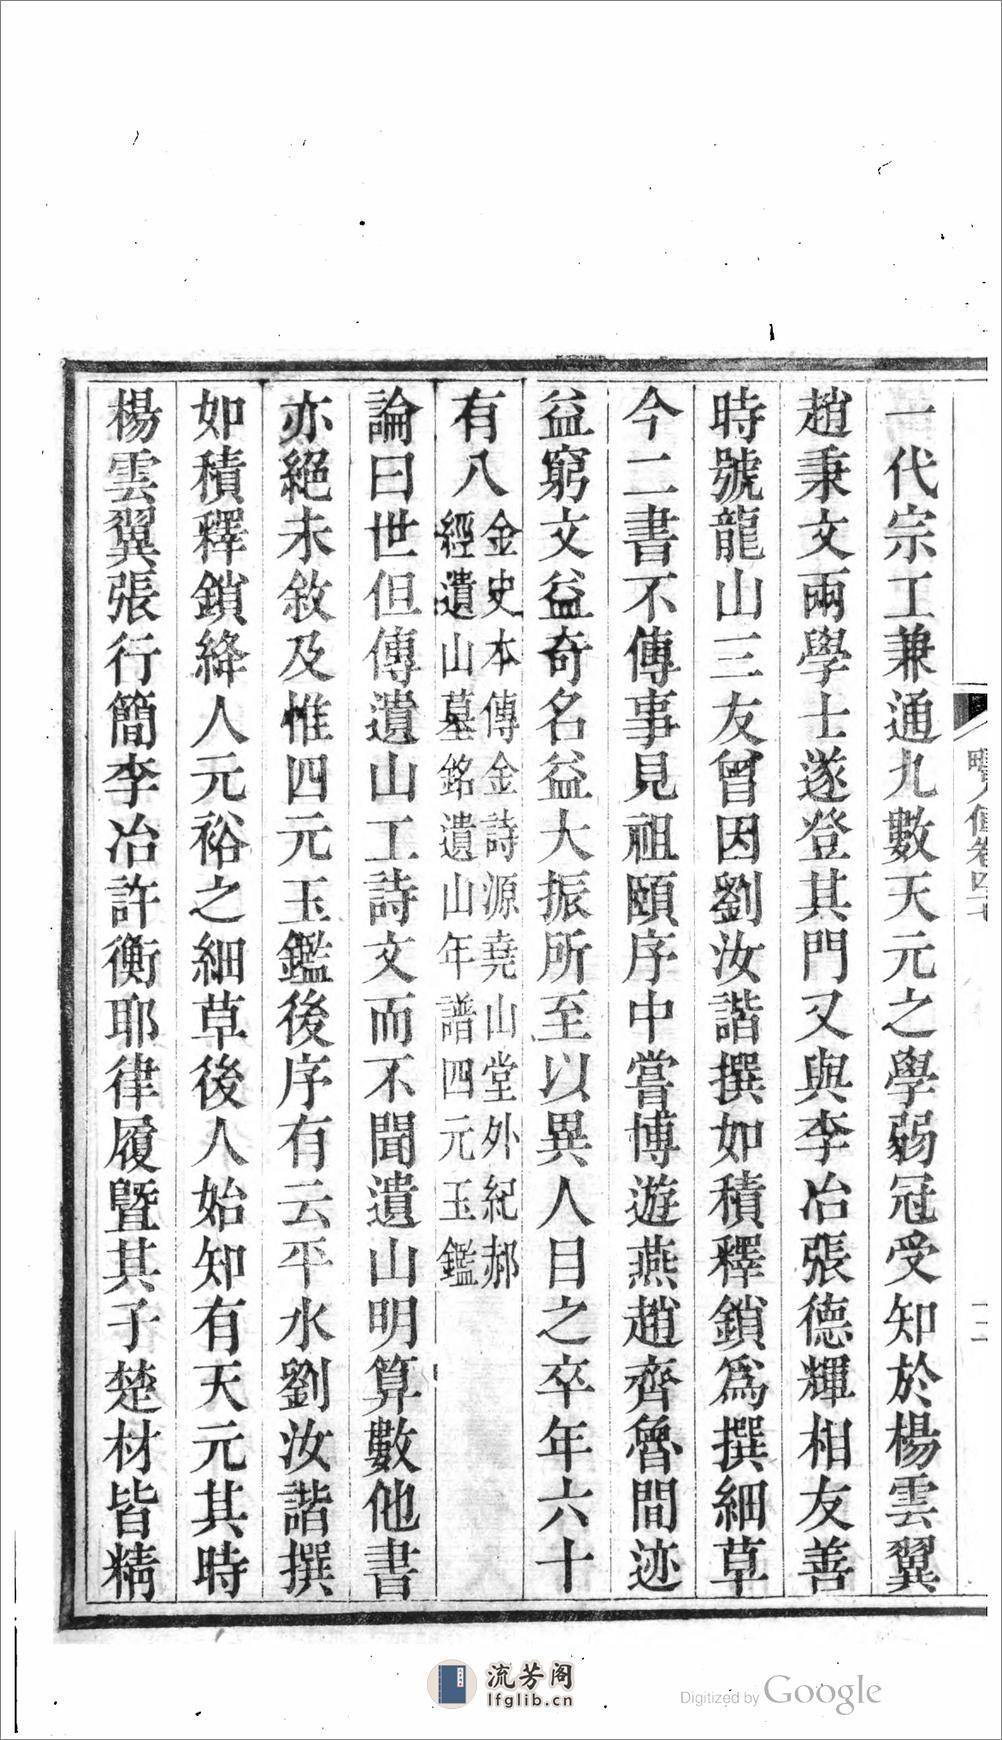 一代宗工兼通九數天元之學弱冠受知於楊雲翼
趙秉文兩學士遂登其門又與李冶張德輝相友善
時號龍山三友曾因劉汝諧撰如積釋鎖爲撰細草
今二書不傳事見祖頤序中嘗博遊燕趙齊魯間迹
益窮文益奇名益大振所至以異人目之卒年六十
有八金史本傳金詩源堯山堂外紀郝
經遺山墓銘遺山年譜四元玉鑑
論曰世但傳遺山工詩文而不聞遺山明算數他書
亦絕未敘及惟四元玉鑑後序有云平水劉汝諧撰
如積釋鎖絳人元裕之細草後人始知有天元其時
楊雲翼張行簡李冶許衡耶律履暨其子楚材皆精
流芳阁
lfglib.cn
Digitized by Google